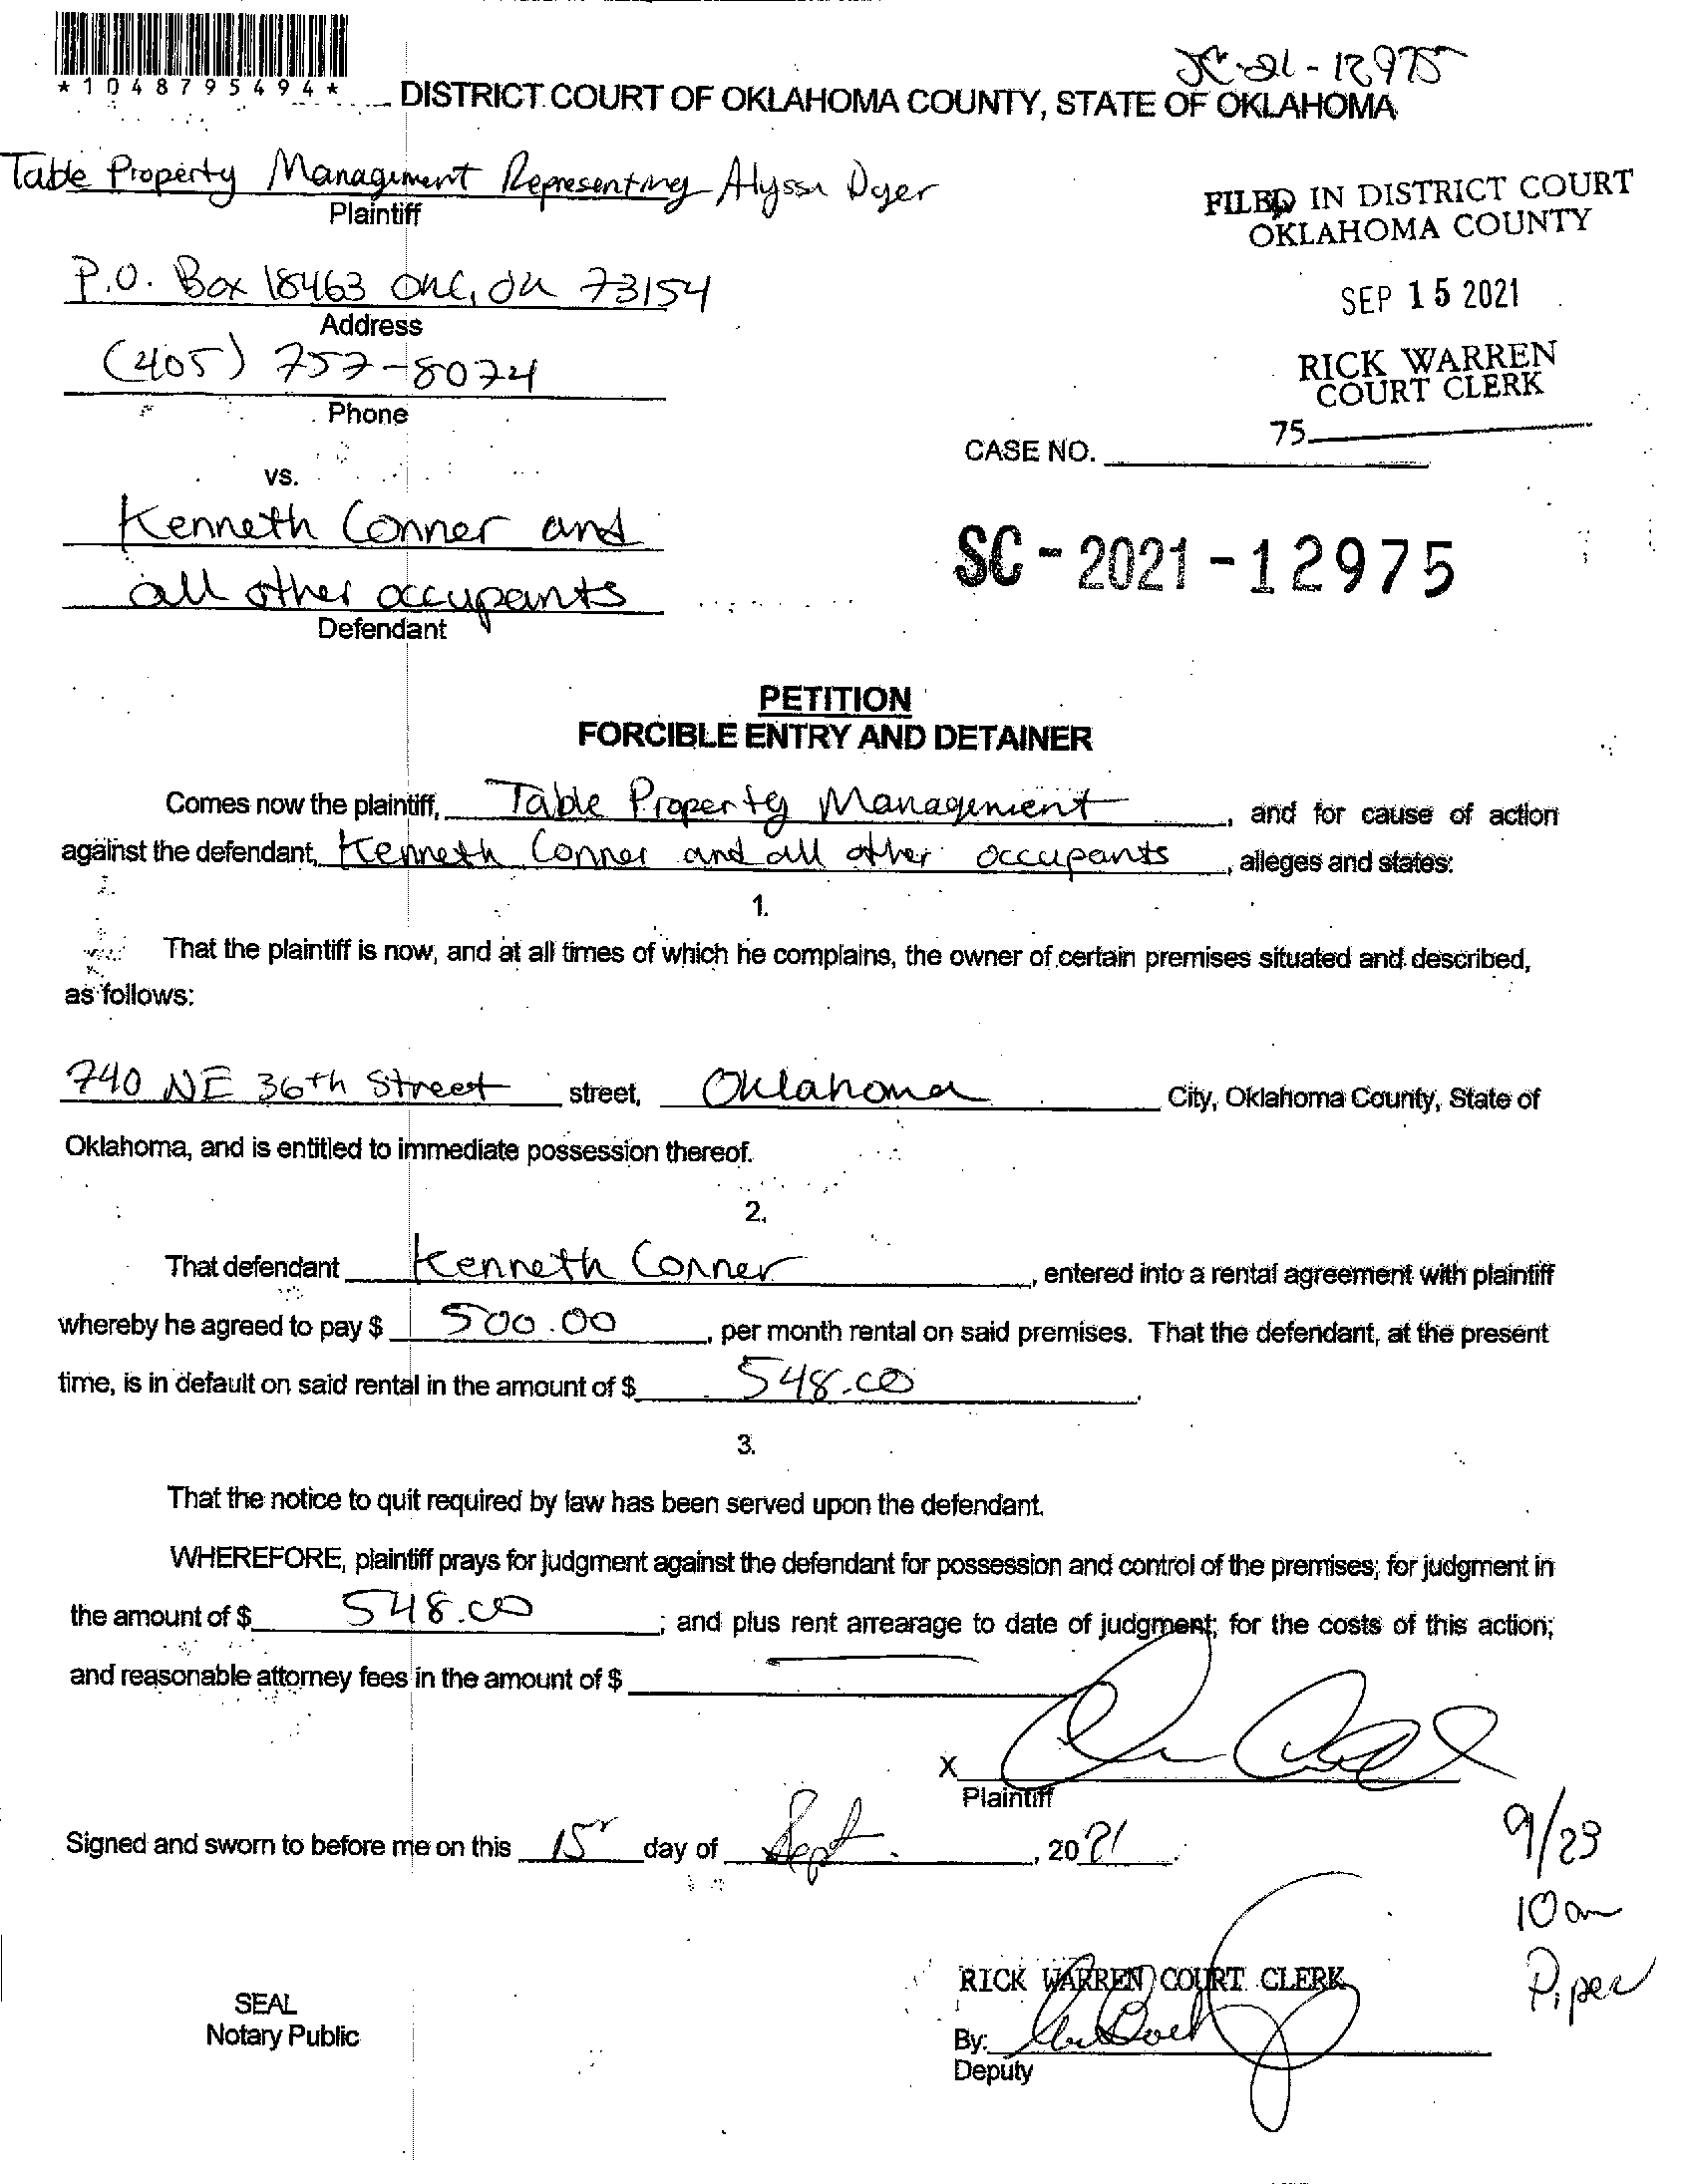 *1048795494*
SC-21-12975
DISTRICT COURT OF OKLAHOMA COUNTY, STATE OF OKLAHOMA
Table Property Management Representing Alyssa Dyer
Plaintiff
FILED IN DISTRICT COURT
OKLAHOMA COUNTY
P.O. Box 18463 OKC, OK 73154
Address
SEP 15 2021
(405) 757-8074
Phone
RICK WARREN
COURT CLERK
75
CASE NO.
vs.
Kenneth Conner and
all other occupants
Defendant
SC-2021-12975
PETITION
FORCIBLE ENTRY AND DETAINER
Comes now the plaintiff, Table Property Management, and for cause of action
against the defendant, Kenneth Conner and all other occupants, alleges and states:
1.
That the plaintiff is now, and at all times of which he complains, the owner of certain premises situated and described,
as follows:
740 NE 36th Street street, Oklahoma City, Oklahoma County, State of
Oklahoma, and is entitled to immediate possession thereof.
2.
That defendant Kenneth Conner, entered into a rental agreement with plaintiff
whereby he agreed to pay $ 500.00, per month rental on said premises. That the defendant, at the present
time, is in default on said rental in the amount of $ 548.00.
3.
That the notice to quit required by law has been served upon the defendant.
WHEREFORE, plaintiff prays for judgment against the defendant for possession and control of the premises; for judgment in
the amount of $ 548.00; and plus rent arrearage to date of judgment; for the costs of this action;
and reasonable attorney fees in the amount of $
X
Plaintiff
Signed and sworn to before me on this 15 day of Sept., 2021.
9/23
10am
Piper
RICK WARREN COURT CLERK
SEAL
Notary Public
By:
Deputy